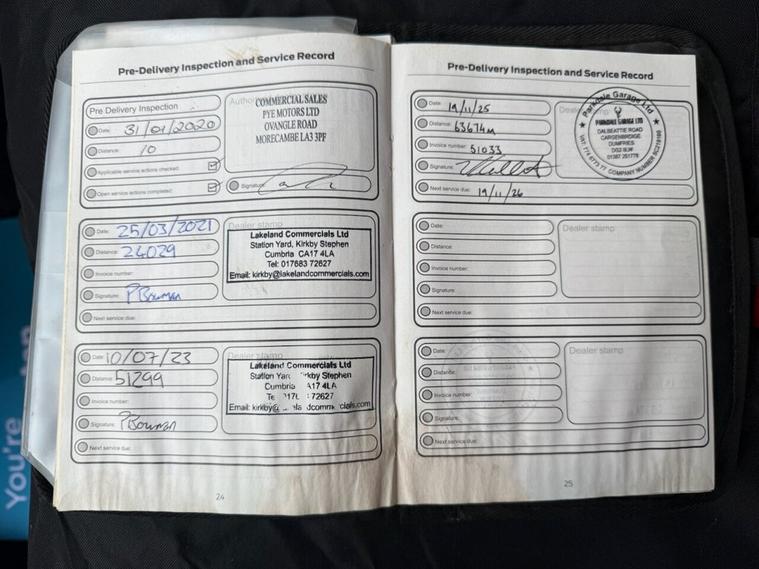 Pre-Delivery Inspection and Service Record
Pre Delivery Inspection
Date: 31/01/2020
Distance: 10
Applicable service actions checked:
Open service actions completed:
COMMERCIAL SALES
PYE MOTORS LTD
OVANGLE ROAD
MORECAMBE LA3 3PF
Signature:
Date: 25/03/2021
Distance: 24029
Invoice number:
Signature: PBowman
Next service due:
Dealer stamp
Lakeland Commercials Ltd
Station Yard, Kirkby Stephen
Cumbria CA17 4LA
Tel: 017683 72627
Email: kirkby@lakelandcommercials.com
Date: 10/07/23
Distance: 51299
Invoice number:
Signature: PBowman
Next service due:
Dealer stamp
Lakeland Commercials Ltd
Station Yard, Kirkby Stephen
Cumbria CA17 4LA
72627
24
Pre-Delivery Inspection and Service Record
Date: 19/11/25
Distance: 63674m
Invoice number: 51033
Signature:
Next service due: 19/11/26
Parkdale Garage Ltd
PARKDALE GARAGE LTD
DALBEATTIE ROAD
CARGENBRIDGE
DUMFRIES
DG2 8LW
01387 251778
COMPANY NUMBER
Date:
Distance:
Invoice number:
Signature:
Next service due:
Dealer stamp
Date:
Distance:
Invoice number:
Signature:
Next service due:
Dealer stamp
25
You're